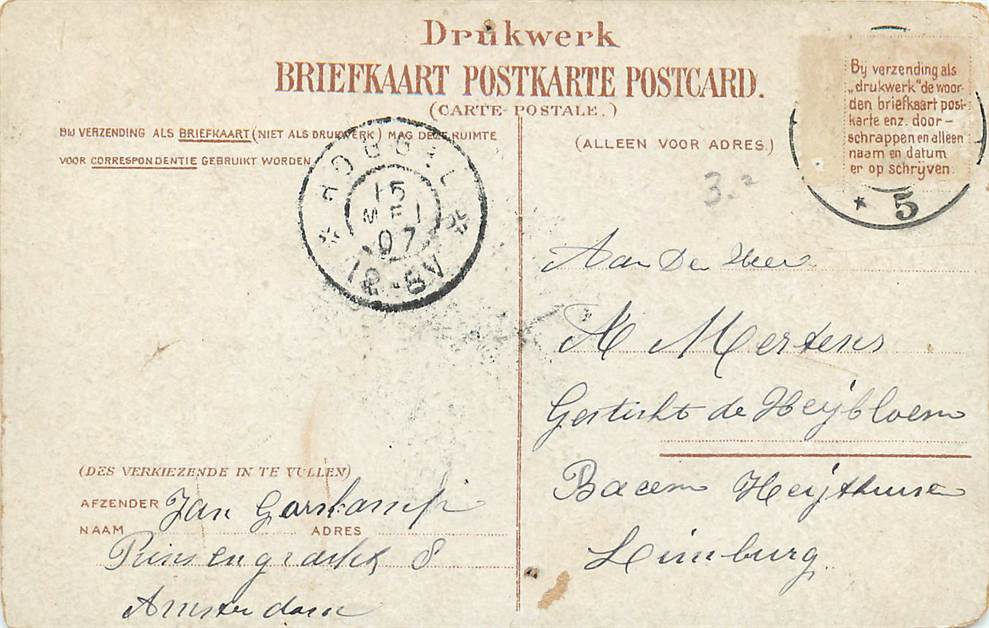 Drukwerk
BRIEFKAART POSTKARTE POSTCARD.
(CARTE-POSTALE.)
BIJ VERZENDING ALS BRIEFKAART (NIET ALS DRUKWERK) MAG DEZE RUIMTE
VOOR CORRESPONDENTIE GEBRUIKT WORDEN
(ALLEEN VOOR ADRES.)
By verzending als
„drukwerk" de woor-
den briefkaart post-
karte enz. door-
schrappen en alleen
naam en datum
er op schrijven.
3.-
* 5
15
SEP
07
Aan Den Heer
Mertens
Gesticht de Heijbloem
Bacem Heijthuisen
Limburg
(DES VERKIEZENDE IN TE VULLEN)
AFZENDER Jan
NAAM ADRES
Prinsengracht 8
Amsterdam